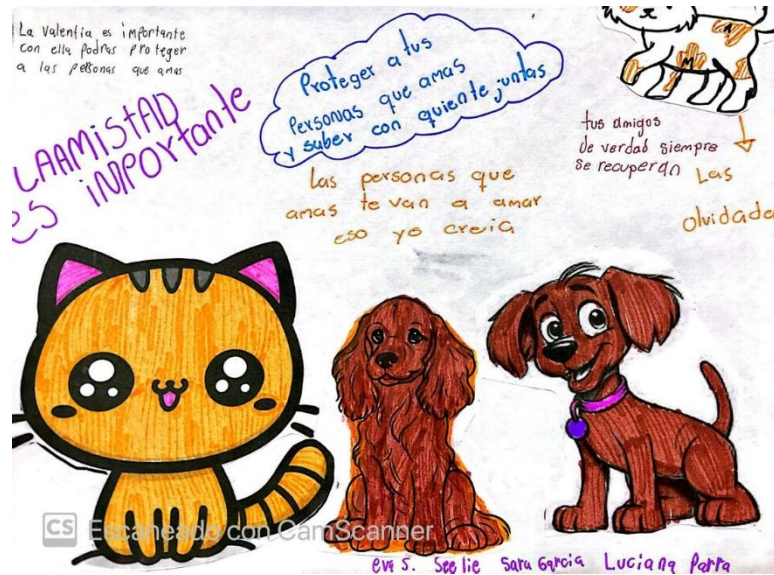 La valentia es importante
con ella podras proteger
a las personas que amas
LA AMISTAD
ES iMPORtante
Proteger a tus
Personas que amas
y saber con quiente juntas
Las personas que
amas te van a amar
eso yo creia
tus amigos
de verdad siempre
se recuperan
Las
olvidada
CS Escaneado con CamScanner
eva S. Seelie Sara Garcia Luciana Parra